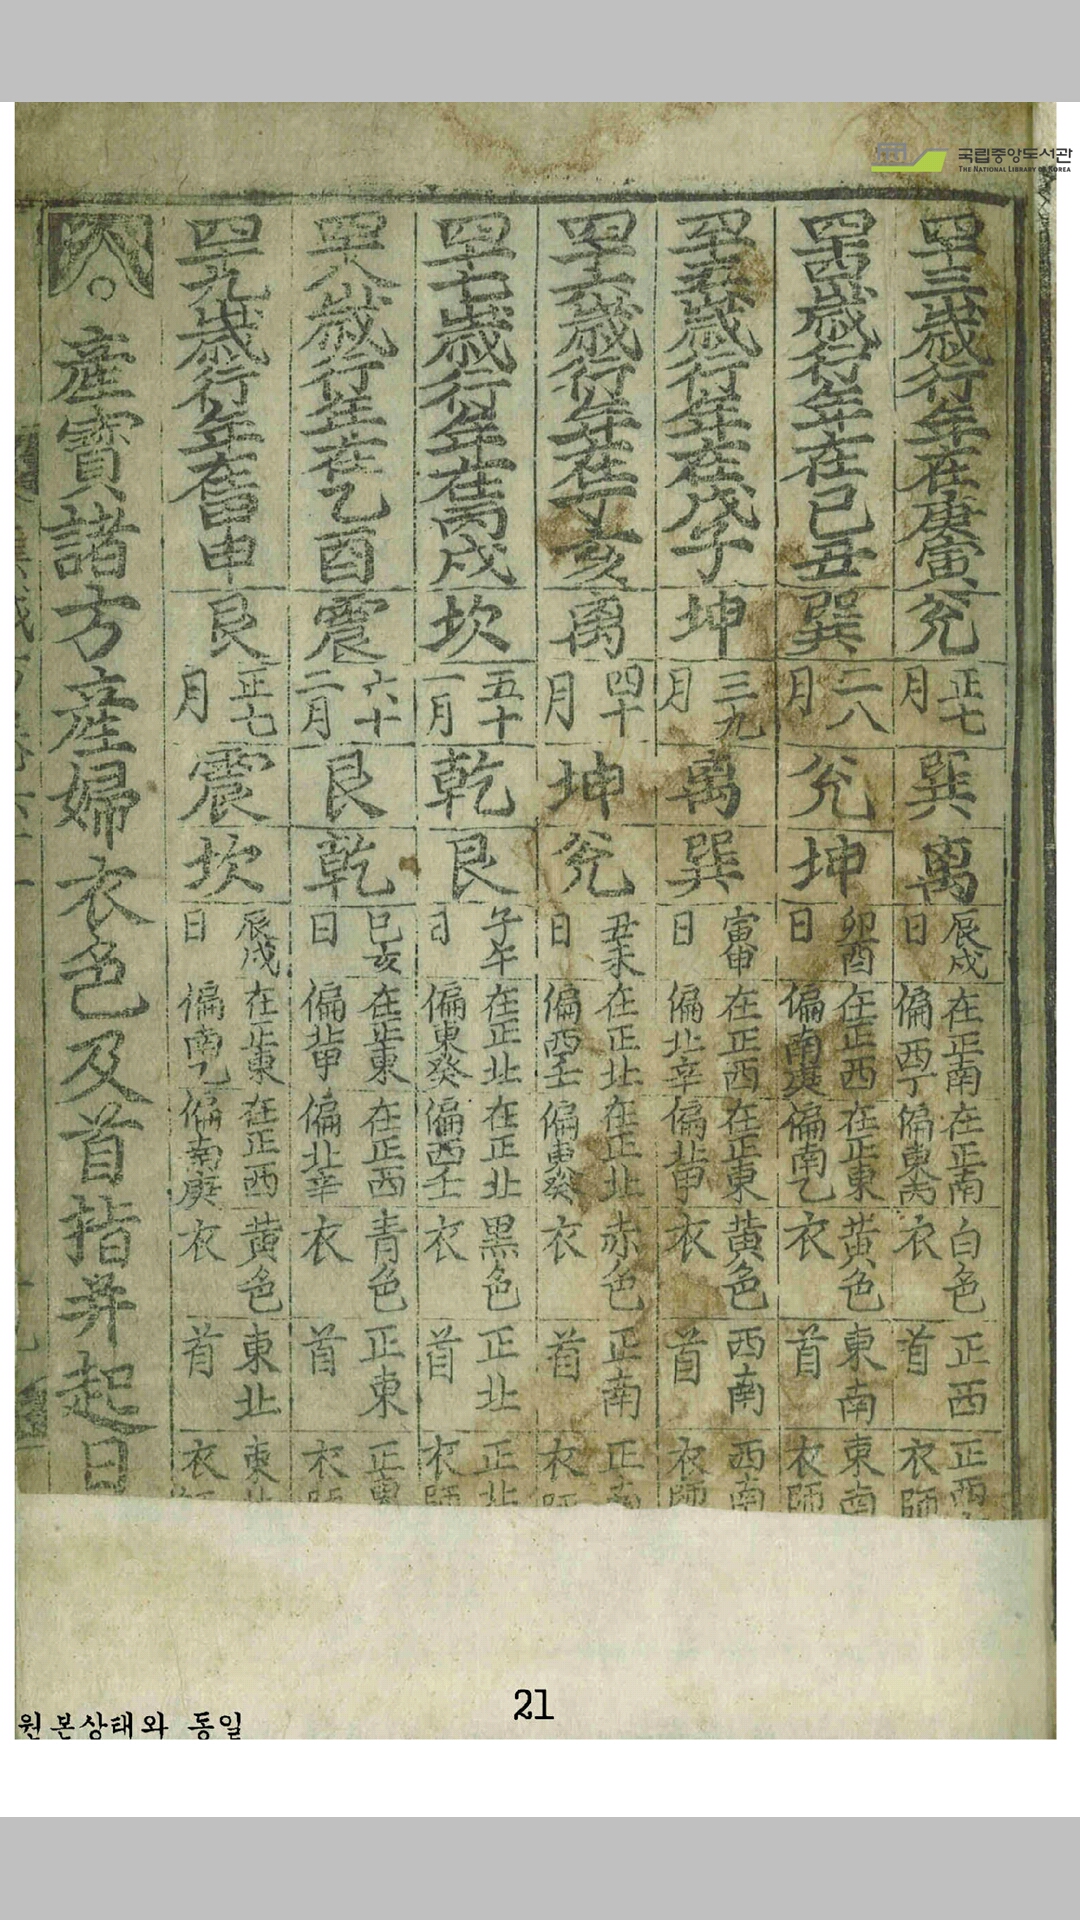 국립중앙도서관
THE NATIONAL LIBRARY OF KOREA
四十三歲行年在庚寅 兊 正七月 巽 离 辰戌日 在正南偏西丁 在正南偏東丙 白色衣 正西首 正西衣師
四十四歲行年在己丑 巽 二八月 兊 坤 卯酉日 在正西偏南庚 在正東偏南乙 黃色衣 東南首 東南衣師
四十五歲行年在戊子 坤 三九月 离 巽 寅申日 在正西偏北辛 在正東偏北甲 黃色衣 西南首 西南衣師
四十六歲行年在丁亥 离 四十月 坤 兊 丑未日 在正北偏西壬 在正北偏東癸 赤色衣 正南首 正南衣師
四十七歲行年在丙戌 坎 五十一月 乾 艮 子午日 在正北偏東癸 在正北偏西壬 黑色衣 正北首 正北衣師
四十八歲行年在乙酉 震 六十二月 艮 乾 巳亥日 在正東偏北甲 在正西偏北辛 青色衣 正東首 正東衣師
四十九歲行年在甲申 艮 正七月 震 坎 辰戌日 在正東偏南乙 在正西偏南庚 黃色衣 東北首 東北衣師
○產寶諸方產婦衣色及首指并起日
21
원본상태와 동일